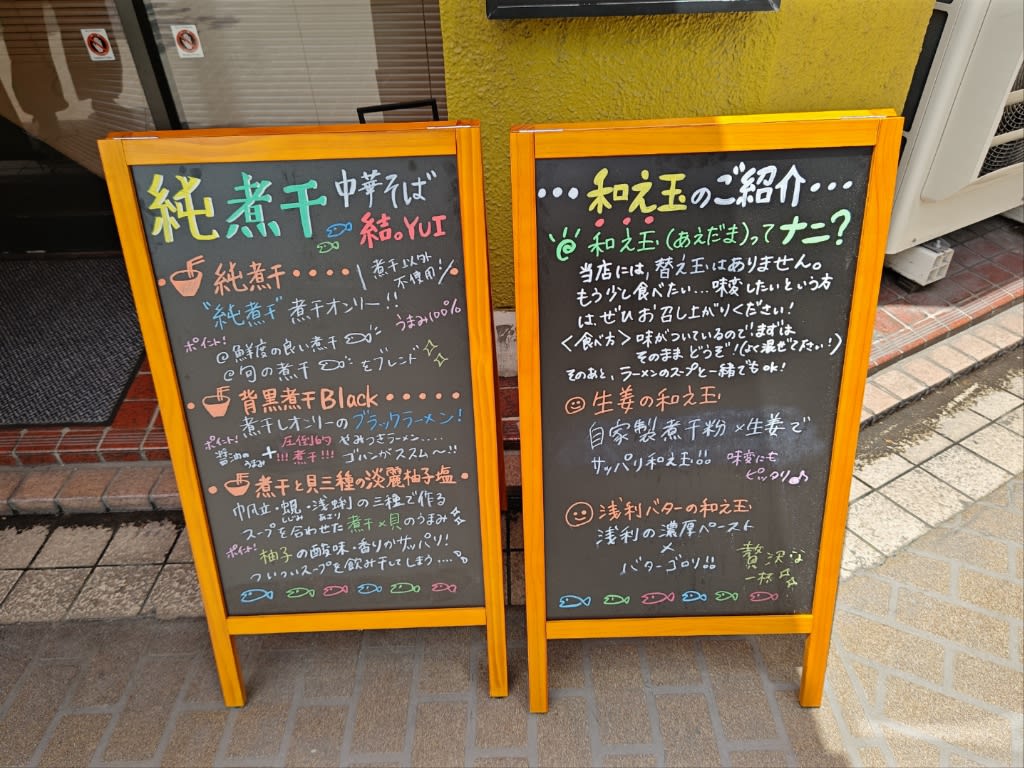 純煮干 中華そば
結。YUI
純煮干 ・・・・
煮干以外
不使用!
"純煮干" 煮干オンリー!!
うまみ100%
ポイント!
@鮮度の良い煮干
@旬の煮干 をブレンド
背黒煮干Black ・・・・・
煮干しオンリーのブラックラーメン!
ポイント!
醤油のうまみ + 圧倒的 !!!煮干!!! やみつきラーメン....
ゴハンがススム〜!!
煮干と貝三種の淡麗柚子塩
帆立・蜆・浅蜊の三種で作る
しじみ あさり
スープを合わせた煮干×貝のうまみ
ポイント! 柚子の酸味・香りがサッパリ!
ついついスープを飲み干してしまう....
・・・和え玉のご紹介・・・
和え玉(あえだま)ってナニ?
当店には、替え玉はありません。
もう少し食べたい…味変したいという方
は、ぜひお召し上がりください!
〈食べ方〉味がついているので まずは
そのまま どうぞ!(よく混ぜて下さい!)
そのあと、ラーメンのスープと一緒でもOK!
生姜の和え玉
自家製煮干粉×生姜で
サッパリ和え玉!! 味変にも
ピッタリ♪
浅利バターの和え玉
浅利の濃厚ペースト
×
バターゴロリ!!
贅沢な
一杯